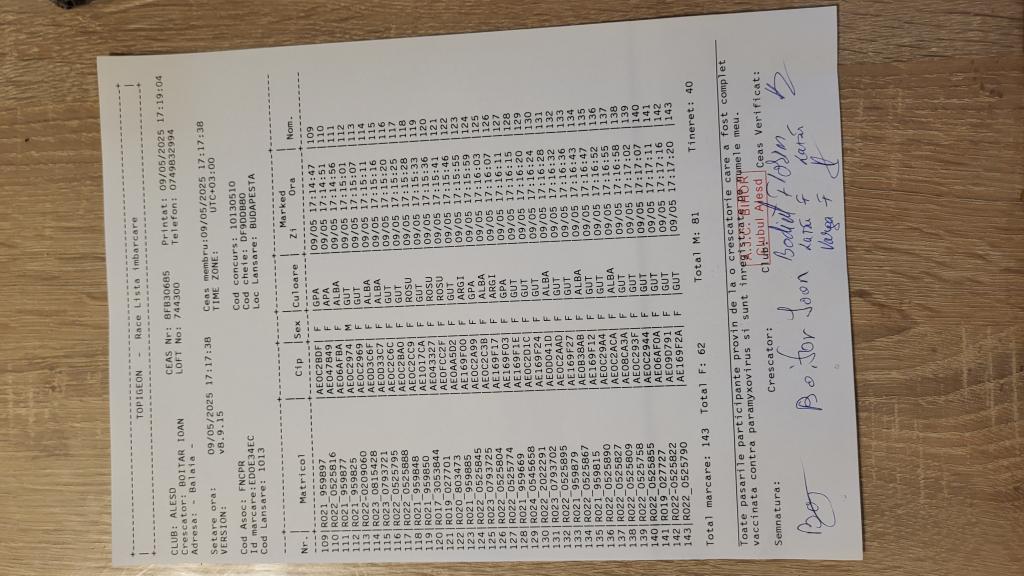 TOPIGEON - Race Lista imbarcare
CLUB: ALESD CEAS Nr: 8FB306B5 Printat: 09/05/2025 17:19:04
Crescator: BOITAR IOAN LOFT No: 744300 Telefon: 0749832994
Adresa: - Balaia -
Setare ora: 09/05/2025 17:17:38 Ceas membru:09/05/2025 17:17:38
VERSION: v8.9.15 TIME ZONE: UTC+03:00
Cod Asoc.:FNCPR Cod concurs: 10130510
Id marcare:ED0E34EC Cod cheie: DF9DDBB0
Cod Lansare: 1013 Loc Lansare: BUDAPESTA
Nr.| Matricol | Cip | Sex | Culoare | Marked Zi Ora | Nom.
109|RO21_959897 |AE0C2BDF| F |GPA |09/05 17:14:47 |109
110|RO22_0525816 |AE047849| F |APA |09/05 17:14:56 |110
111|RO21_959877 |AE06AFBA| F |ALBA |09/05 17:15:01 |111
112|RO21_959825 |AE0C2974| M |GUT |09/05 17:15:07 |112
113|RO22_0209060 |AE0C2969| F |GUT |09/05 17:15:11 |113
114|RO23_0815428 |AED33C6F| F |ALBA |09/05 17:15:16 |114
115|RO23_0793721 |AED333C7| F |ALBA |09/05 17:15:16 |115
116|RO22_0525795 |AE0C2C66| F |GUT |09/05 17:15:20 |116
117|RO22_0525888 |AE0C2BA0| F |GUT |09/05 17:15:25 |117
118|RO21_959848 |AE0C2CC9| F |ROSU |09/05 17:15:28 |118
119|RO21_959850 |AE0C2CC9| F |GUT |09/05 17:15:33 |119
120|RO17_3053844 |AE1017CA| F |ROSU |09/05 17:15:36 |120
121|RO19_027701 |AE04332F| F |ROSU |09/05 17:15:41 |121
122|RO20_803473 |AE0FCC2F| F |GUT |09/05 17:15:46 |122
123|RO21_959885 |AE0AA5D2| F |GUT |09/05 17:15:55 |123
124|RO22_0525845 |AE169F00| F |ARGI |09/05 17:15:59 |124
125|RO23_0793725 |AE0C2A99| F |GPA |09/05 17:16:03 |125
126|RO22_0525804 |AE0C2C3B| F |ALBA |09/05 17:16:07 |126
127|RO22_0525774 |AE169F17| F |ARGI |09/05 17:16:11 |127
128|RO21_959669 |AE169FD3| F |GPA |09/05 17:16:15 |128
129|RO24_0545658 |AE169F1E| F |GUT |09/05 17:16:20 |129
130|RO22_2022291 |AE0C2D1C| F |GUT |09/05 17:16:24 |130
131|RO23_0793702 |AE169F24| F |GUT |09/05 17:16:28 |131
132|RO22_0525895 |AED0041D| F |ALBA |09/05 17:16:32 |132
133|RO21_959879 |AE0C2AAD| F |GUT |09/05 17:16:36 |133
134|RO22_0525867 |AE169F27| F |GUT |09/05 17:16:43 |134
135|RO21_959815 |AE0B3DAB| F |ALBA |09/05 17:16:47 |135
136|RO22_0525890 |AE169F12| F |GUT |09/05 17:16:52 |136
137|RO22_0525827 |AE0C29A4| F |GUT |09/05 17:16:55 |137
138|RO22_0525809 |AE0C2ACA| F |ALBA |09/05 17:16:58 |138
139|RO22_0525758 |AE08CA3A| F |GUT |09/05 17:17:02 |139
140|RO22_0525855 |AE0C293F| F |GUT |09/05 17:17:07 |140
141|RO19_0277727 |AE0C2944| F |GUT |09/05 17:17:11 |141
142|RO22_0525822 |AE06AF0A| F |GUT |09/05 17:17:16 |142
143|RO22_0525790 |AE169F2A| F |GUT |09/05 17:17:20 |143
Total marcare: 143 Total F: 62 Total M: 81 Tineret: 40
Toate pasarile participante provin de la o crescatorie care a fost complet
vaccinata contra paramyxovirus si sunt inregistrate pe numele meu.
A.J.C. BIHOR
Clubul Alesd
Semnatura: Crescator: Club: Ceas Verificat:
Boitor Ioan
Varga F